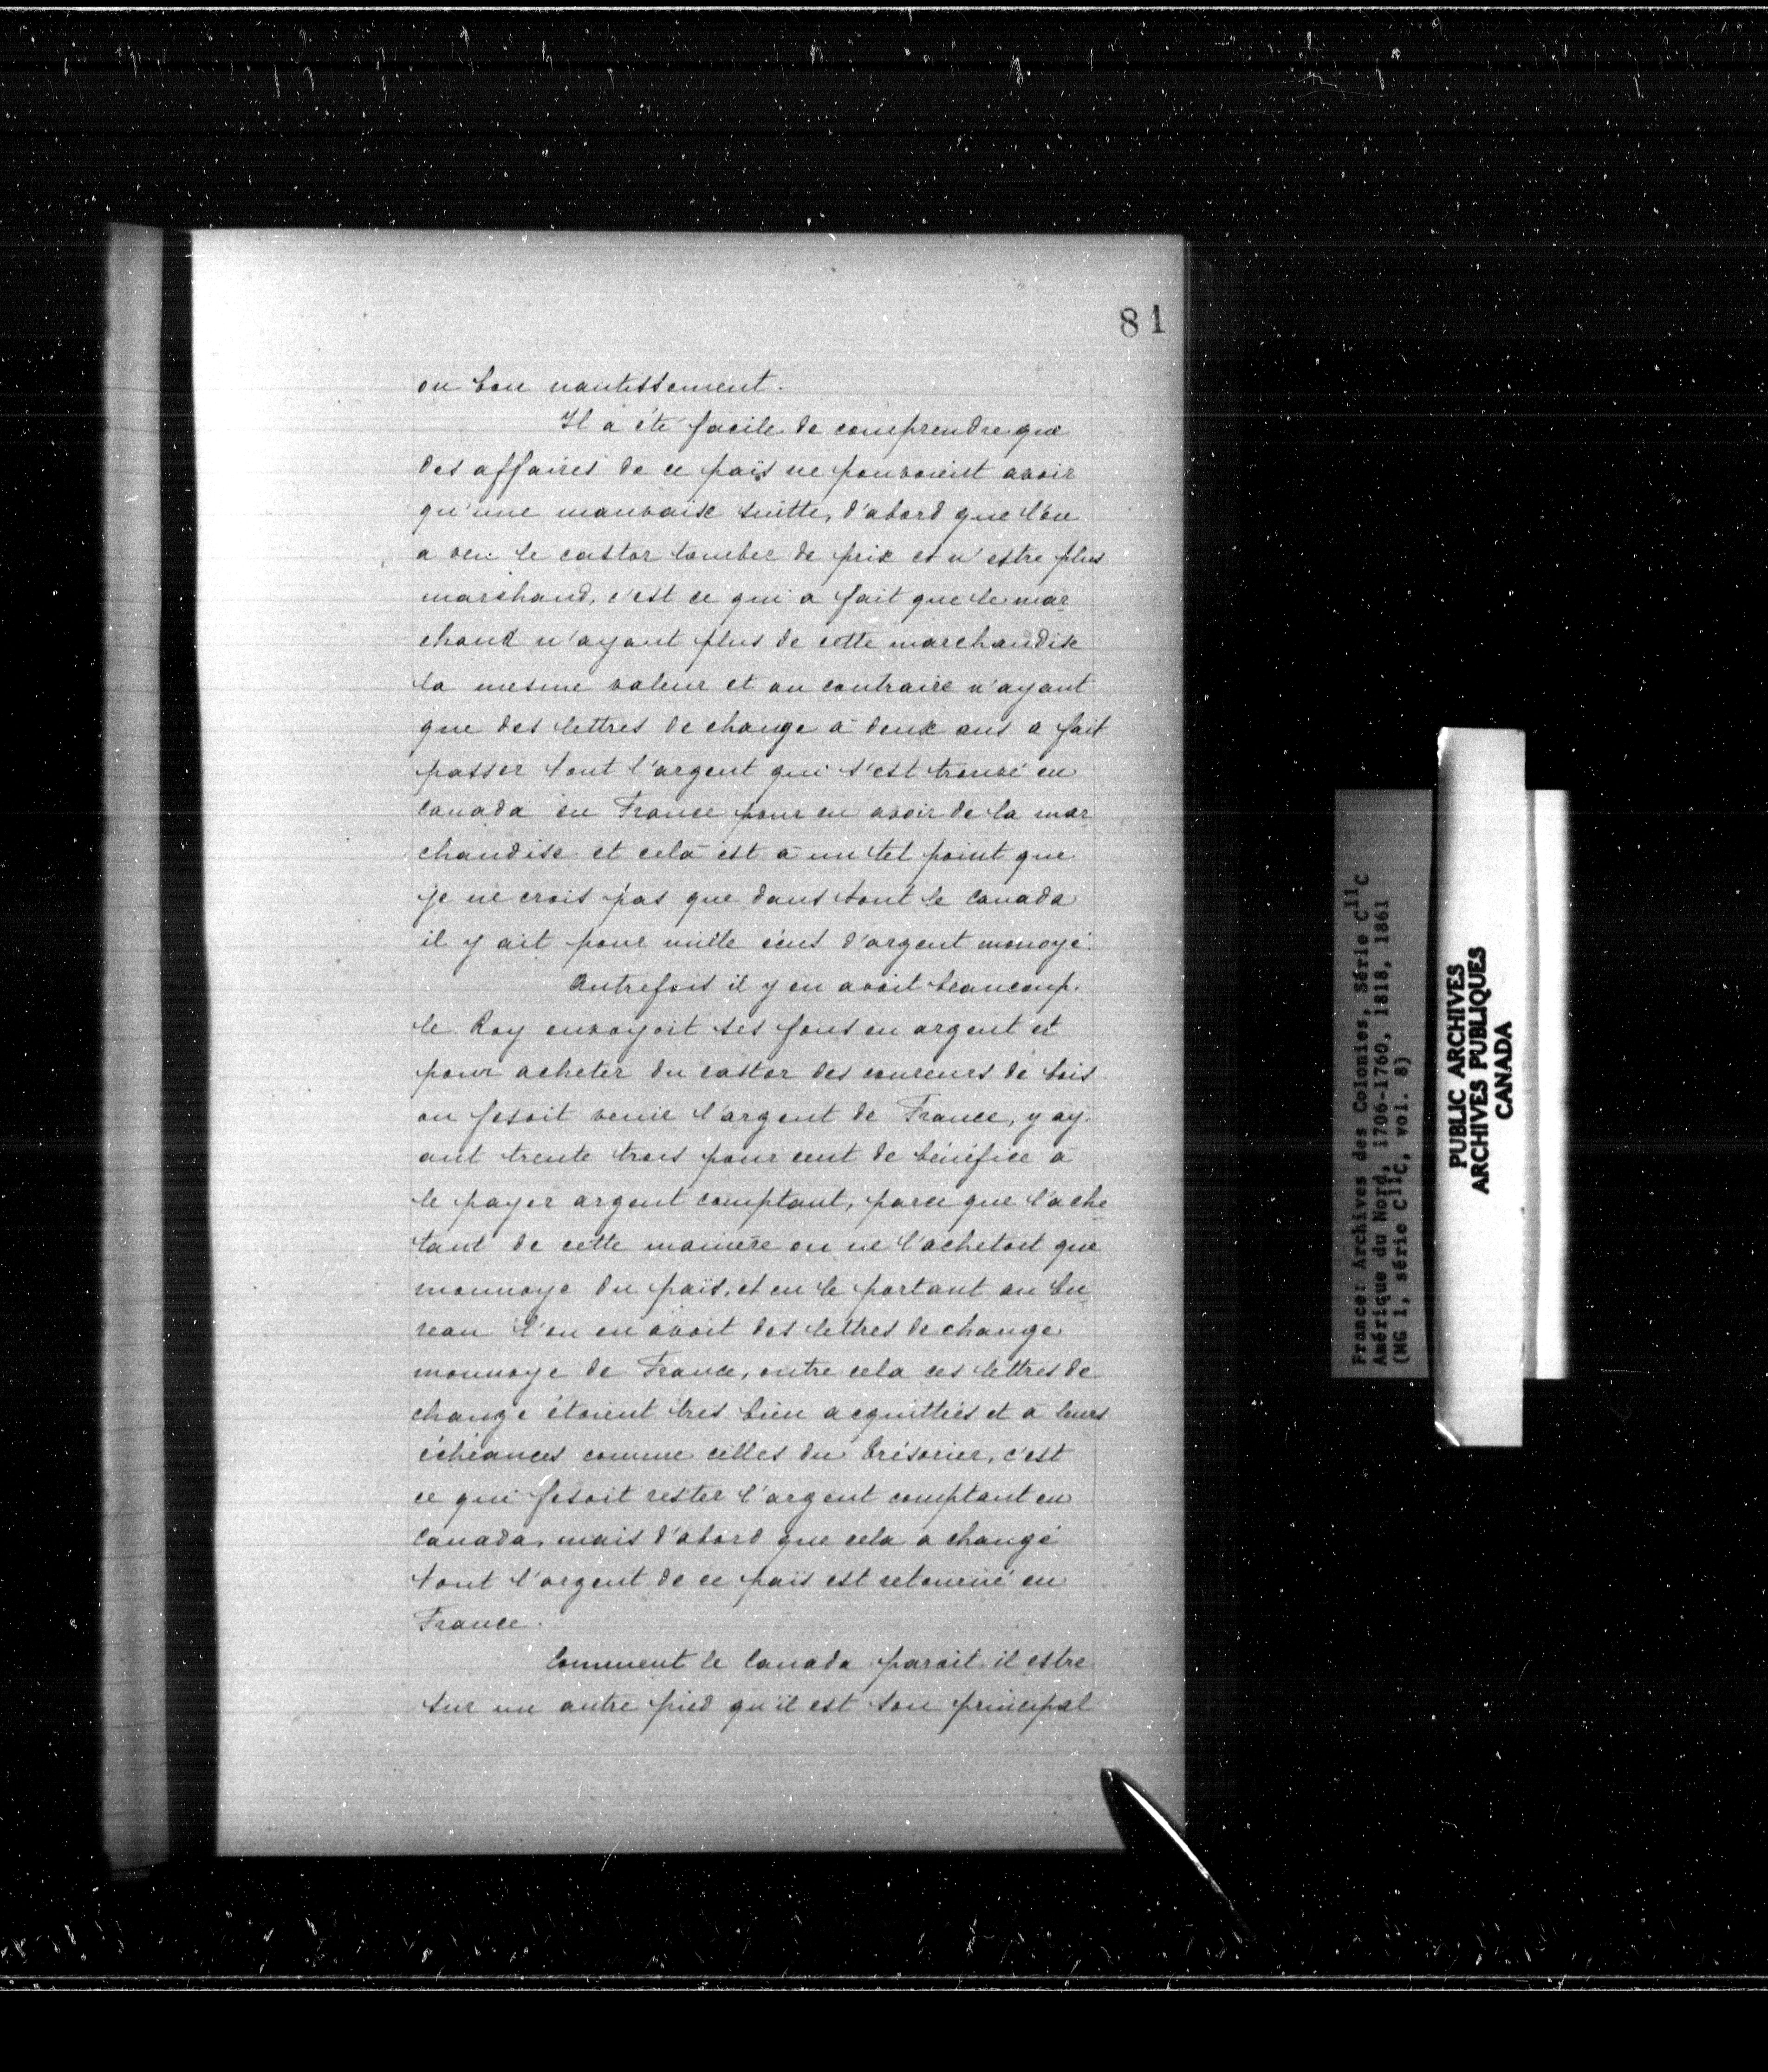 81
ou bon nantissement.
Il a été facile de comprendre que
des affaires de ce païs ne pouvoient avoir
qu'une mauvaise suitte, d'abord que l'on
a veu le castor tomber de prix et n'estre plus
marchand, c'est ce qui a fait que le mar
chand n'ayant plus de cette marchandise
la mesme valeur et au contraire n'ayant
que des lettres de change à deux ans a fait
passer tout l'argent qui s'est trouvé en
Canada en France pour en avoir de la mar
chandise et cela est à un tel point que
je ne crois pas que dans tout le Canada
il y ait pour mille écus d'argent monoyé.
Autrefois il y en avoit beaucoup.
le Roy envoyoit ses fons en argent et
pour acheter du castor des coureurs de bois
on fesoit venir l'argent de France, y ay
ant trente trois pour cent de bénéfice à
le payer argent comptant, parce que l'ache
tant de cette maniere on ne l'achetoit que
monnoye du païs, et en le portant au bu
reau l'on en avoit des lettres de change
monnoye de France, outre cela ces lettres de
change étoient tres bien acquittées et à leurs
échéances comme celles du Trésorier, c'est
ce qui fesoit rester l'argent comptant en
Canada, mais d'abord que cela a changé
tout l'argent de ce païs est retourné en
France.
Comment le Canada paroit il estre
sur un autre pied qu'il est son principal
France: Archives des Colonies, Série C11C
Amérique du Nord, 1706-1760, 1818, 1861
(MG 1, série C11C, vol. 8)
PUBLIC ARCHIVES
ARCHIVES PUBLIQUES
CANADA